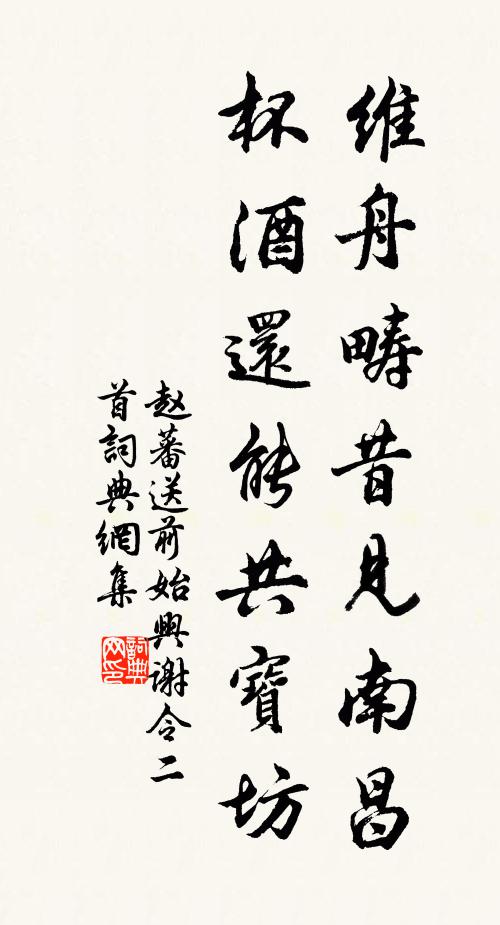 維舟疇昔見南昌
杯酒還能共寶坊
赵蕃送前始興謝令二
首詞典網集
詞典網印